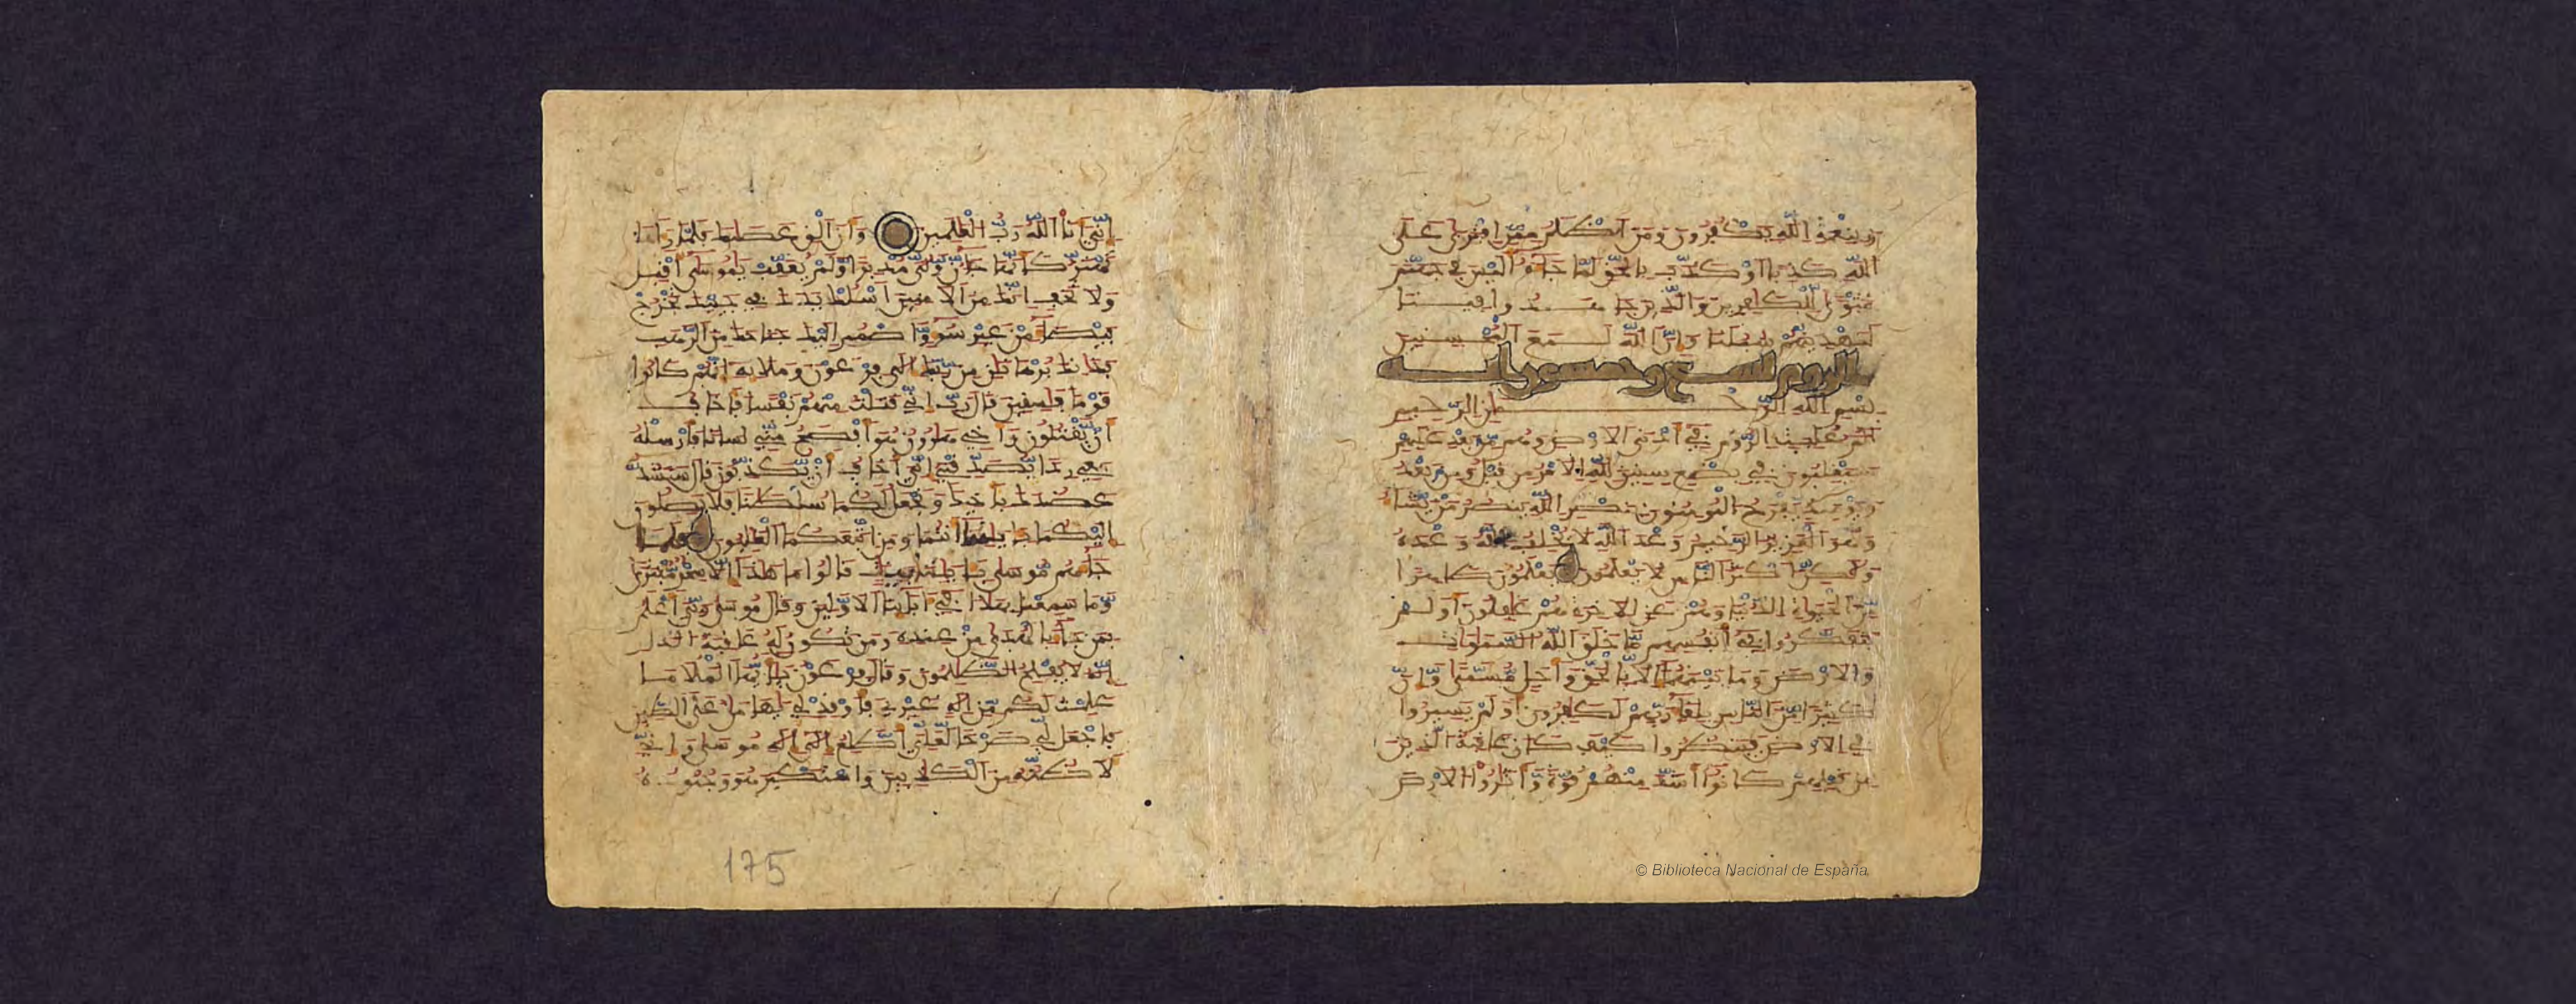 وبنعمة الله يكفرون ومن اظلم ممن افترى على
الله كذبا او كذب بالحق لما جاءه اليس في جهنم
مثوى للكافرين والذين جاهدوا فينا
لنهدينهم سبلنا وان الله لمع المحسنين
الروم تسع وخمسون اية
بسم الله الرحمن الرحيم
الم غلبت الروم في ادنى الارض وهم من بعد غلبهم
سيغلبون في بضع سنين لله الامر من قبل ومن بعد
ويومئذ يفرح المومنون بنصر الله ينصر من يشاء
وهو العزيز الرحيم وعد الله لا يخلف الله وعده
ولكن اكثر الناس لا يعلمون يعلمون ظاهرا
من الحيوة الدنيا وهم عن الاخرة هم غافلون اولم
يتفكروا في انفسهم ما خلق الله السموات
والارض وما بينهما الا بالحق واجل مسمى وان
كثيرا من الناس بلقاء ربهم لكافرون اولم يسيروا
في الارض فينظروا كيف كان عاقبة الذين
من قبلهم كانوا اشد منهم قوة واثاروا الارض
© Biblioteca Nacional de España
اني انا الله رب العلمين وان الق عصاك فلما رءاها
تهتز كانها جان ولى مدبرا ولم يعقب يموسى اقبل
ولا تخف انك من الامنين اسلك يدك في جيبك تخرج
بيضاء من غير سوء واضمم اليك جناحك من الرهب
فذانك برهانان من ربك الى فرعون وملإيه انهم كانوا
قوما فاسقين قال رب اني قتلت منهم نفسا فاخاف
ان يقتلون واخي هارون هو افصح مني لسانا فارسله
معي ردا يصدقني اني اخاف ان يكذبون قال سنشد
عضدك باخيك ونجعل لكما سلطانا فلا يصلون
اليكما باياتنا انتما ومن اتبعكما الغالبون فلما
جاءهم موسى باياتنا بينات قالوا ما هذا الا سحر مفترى
وما سمعنا بهذا في ابائنا الاولين وقال موسى ربي اعلم
بمن جاء بالهدى من عنده ومن تكون له عاقبة الدار
انه لا يفلح الظلمون وقال فرعون يايها الملا ما
علمت لكم من اله غيري فاوقد لي يهامان على الطين
فاجعل لي صرحا لعلي اطلع الى اله موسى واني
لاظنه من الكاذبين واستكبر هو وجنوده
175